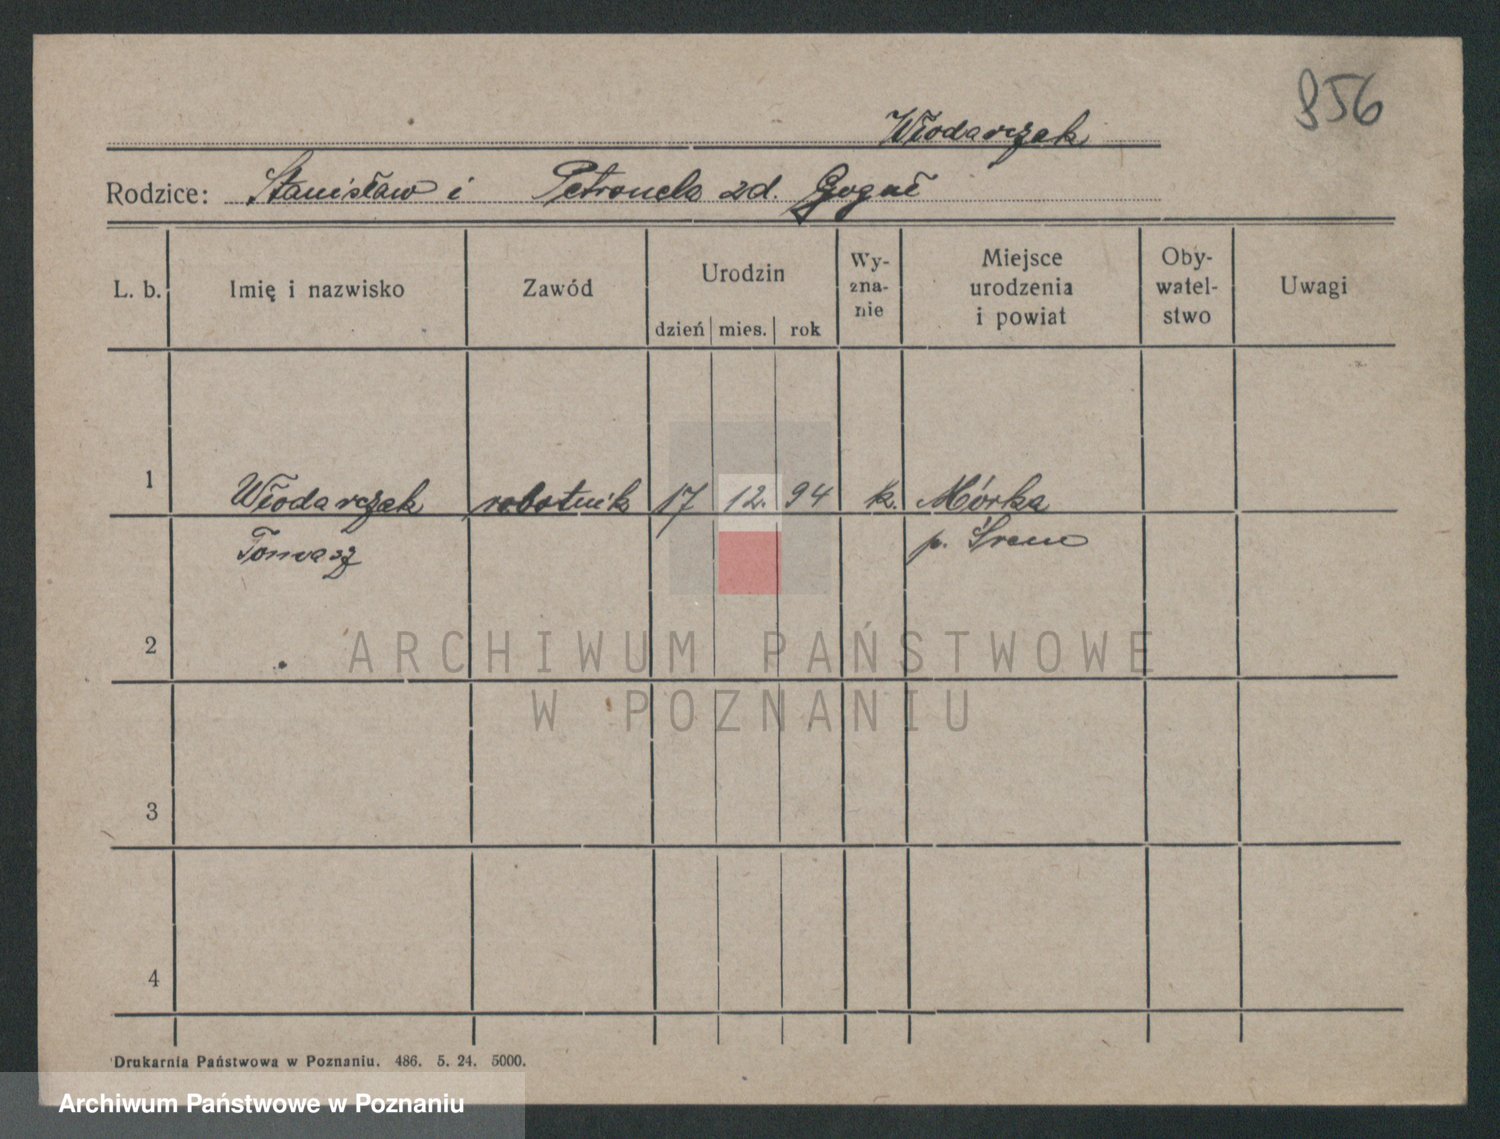 856
Włodarczak
Rodzice: Stanisław i Petronela zd.
L. b. Imię i nazwisko Zawód Urodzin dzień mies. rok Wy-zna-nie Miejsce urodzenia i powiat Oby-watel-stwo Uwagi
1 Włodarczak robotnik 17 12. 94 k. Mórka
Tomasz p. Śrem
2
ARCHIWUM PAŃSTWOWE
W POZNANIU
3
4
Drukarnia Państwowa w Poznaniu. 486. 5. 24. 5000.
Archiwum Państwowe w Poznaniu